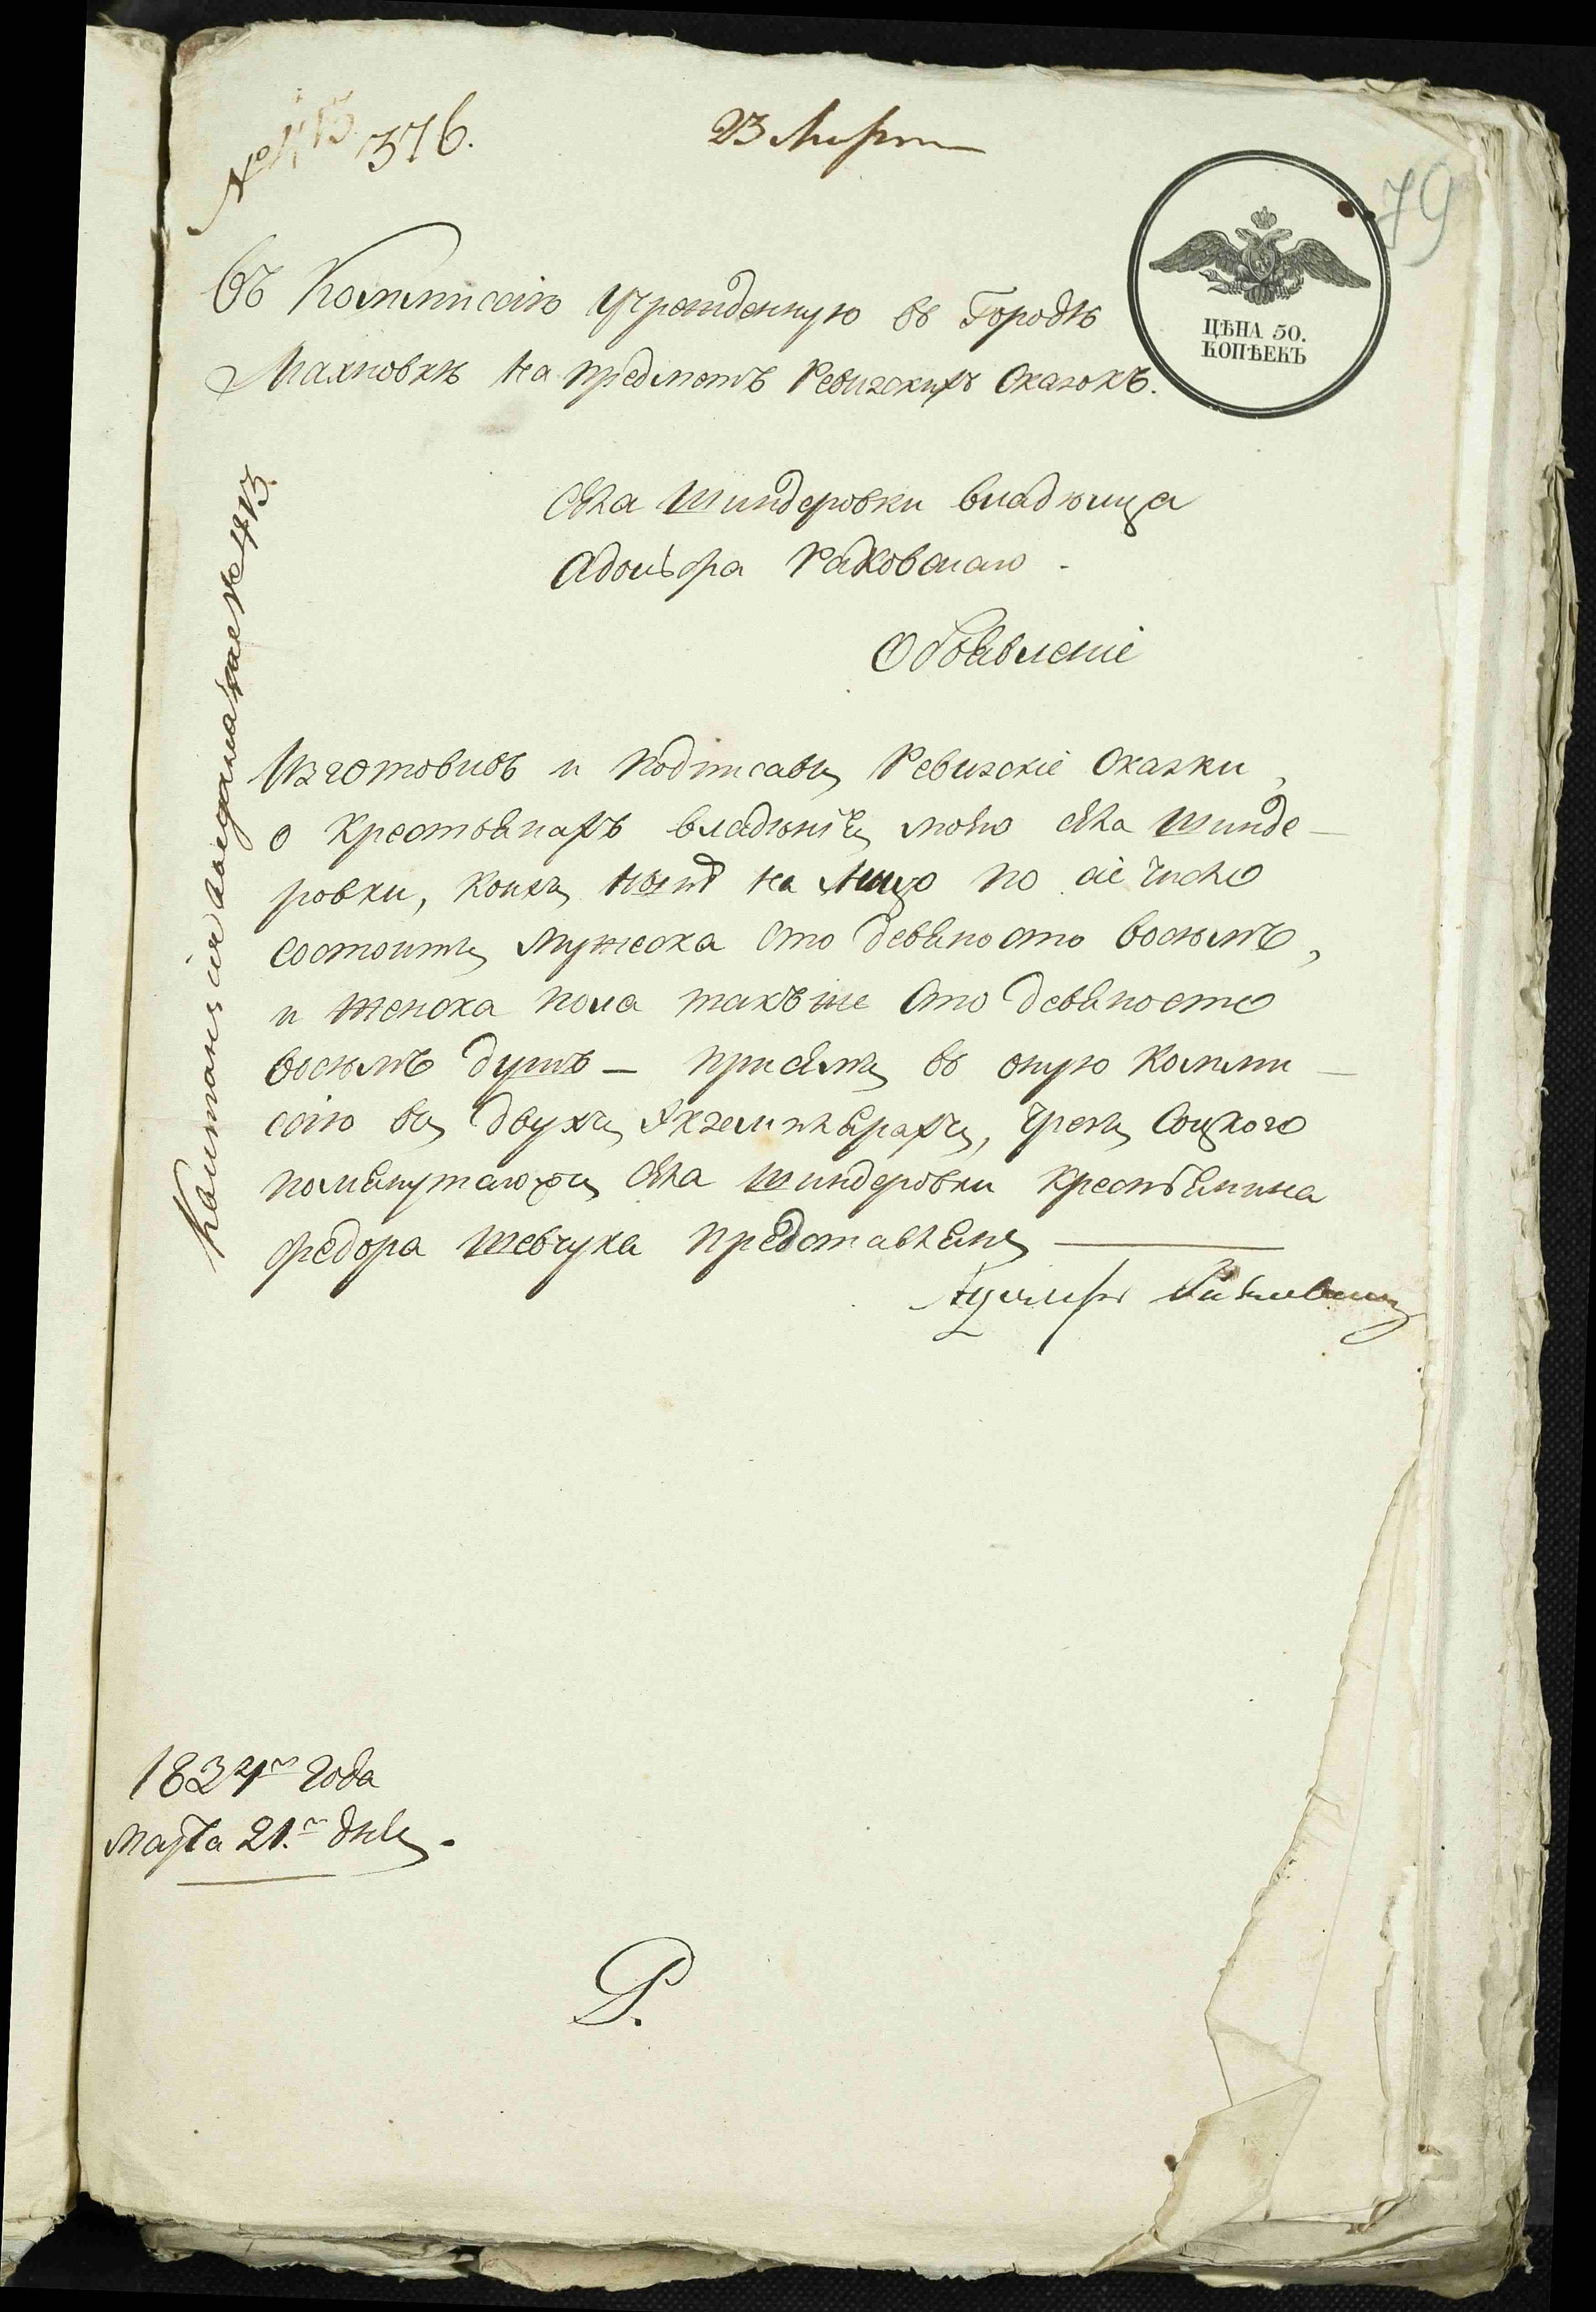 № 413
376.
23 Марта
79
ЦѢНА 50.
КОПѢЕКЪ
Въ Коммисію учрежденную въ Городѣ
Махновкѣ на предметъ Ревизскихъ Сказокъ.
Села Шиндеровки владѣльца
Адольфа Раковскаго
Объявленіе
Изготовивъ и подписавъ Ревизскіе Сказки,
о крестьянахъ владѣнія моего села Шинде-
ровки, коихъ нынѣ на лицо по сіе число
состоитъ мужеска сто девяносто восемъ,
и женска пола такъже сто девяносто
восемъ душъ — при семъ въ оную Комми-
сію въ двухъ Экземплярахъ, чрезъ Соцкого
помянутаго села Шиндеровки крестьянина
Федора Шевчука представляю
1834го года
Марта 21.го дня.
Р.
Квитанція выдана № 413.